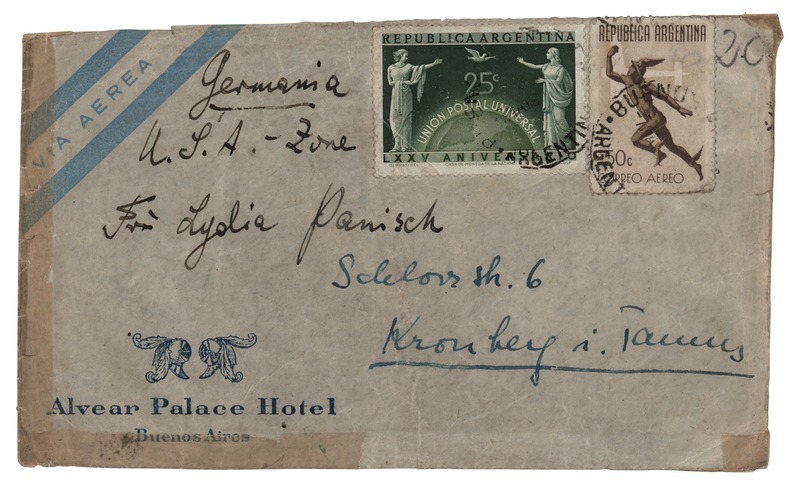 VIA AEREA
Germania
U.S.A.-Zone
Frl Lydia Panisch
Schlossstr. 6
Kronberg i. Taunus
REPUBLICA ARGENTINA
25c
UNION POSTAL UNIVERSAL
LXXV ANIVERSARIO
CASA DE MONEDA DE LA NACION
REPUBLICA ARGENTINA
50c
CORREO AEREO
BUENOS
ARGENTINA
20
Alvear Palace Hotel
Buenos Aires